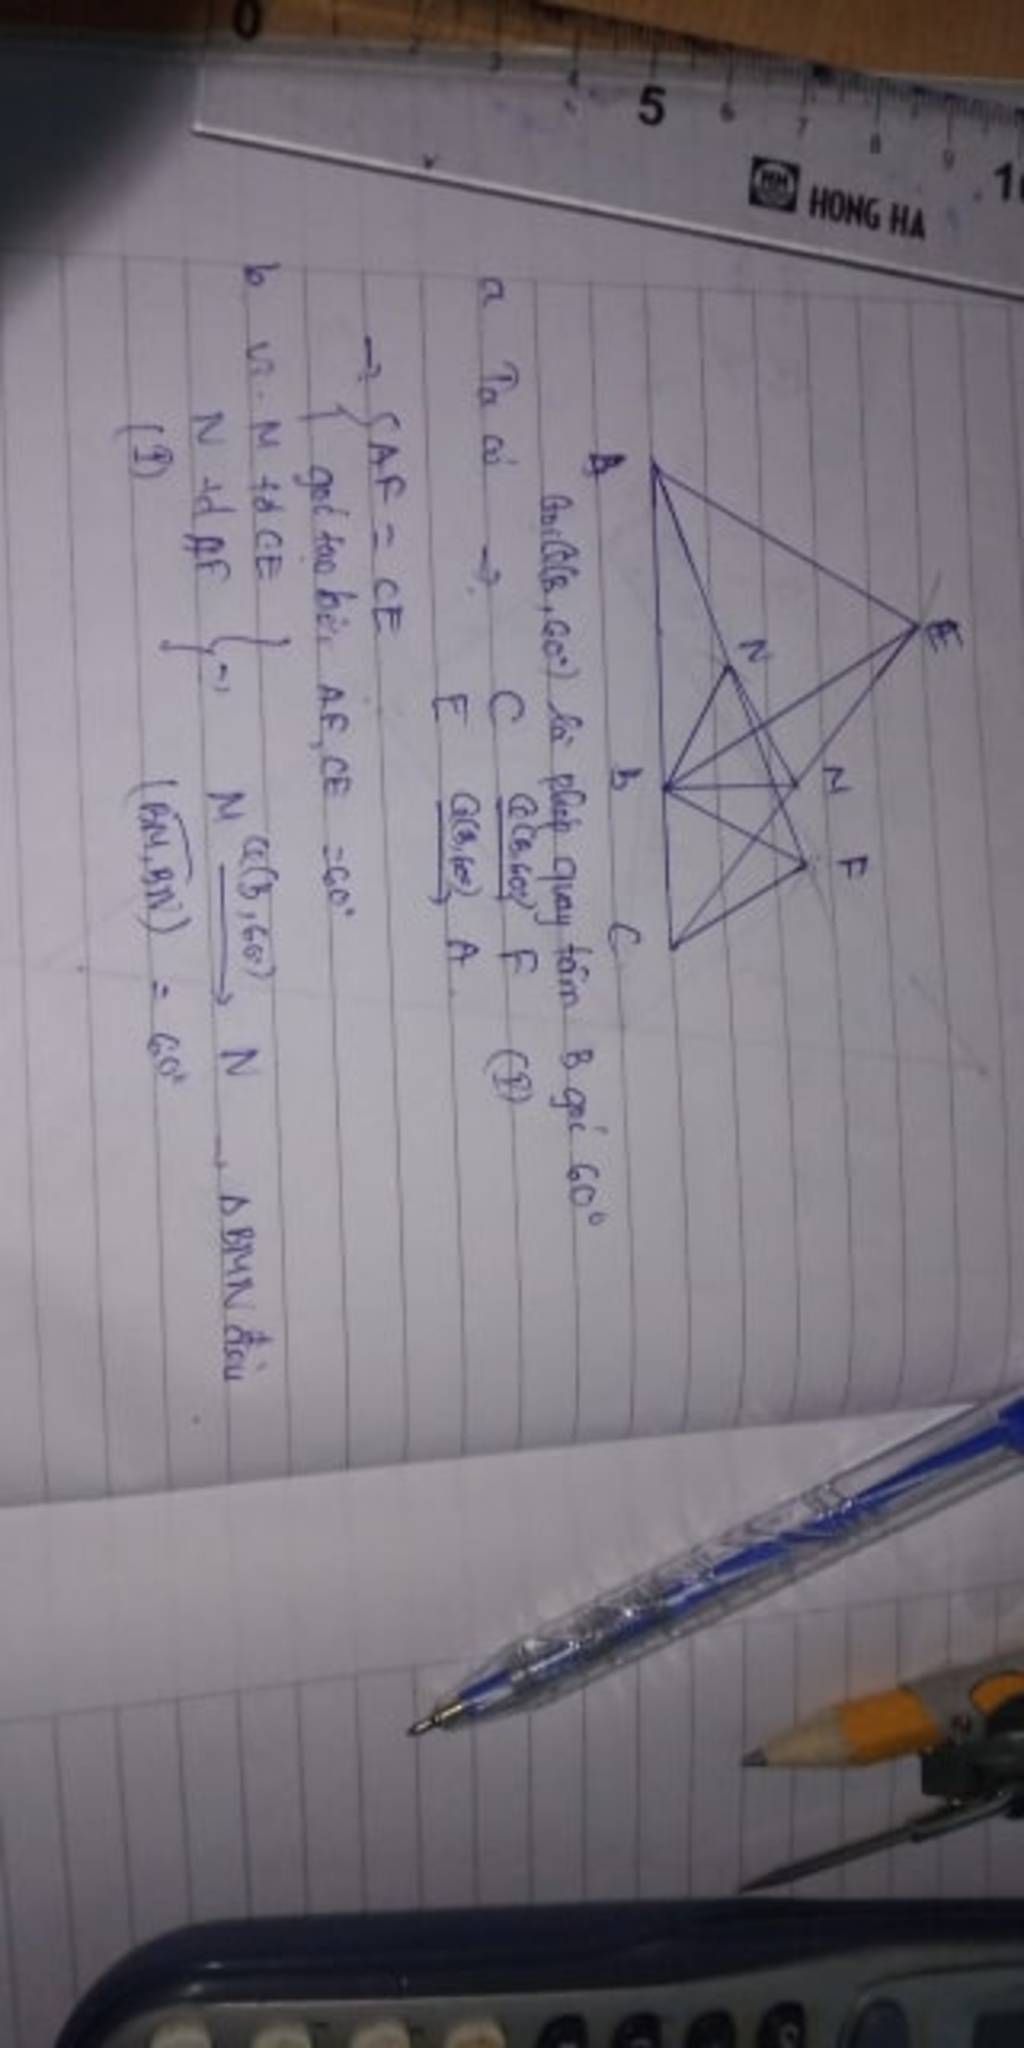 0 3 4 5 6 7 8 9 10
HH HONG HA
E
M
F
N
A B C
Gọi Q(B, 60°) là phép quay tâm B góc 60°
a Ta có → C Q(B,60°) F (I)
E Q(B,60°) A
→ { AF = CE
góc tạo bởi AF, CE = 60°
b vì M tđ CE
N tđ AF
(I)
} → M Q(B,60°) N → Δ BMN đều
(BM, BN) = 60°